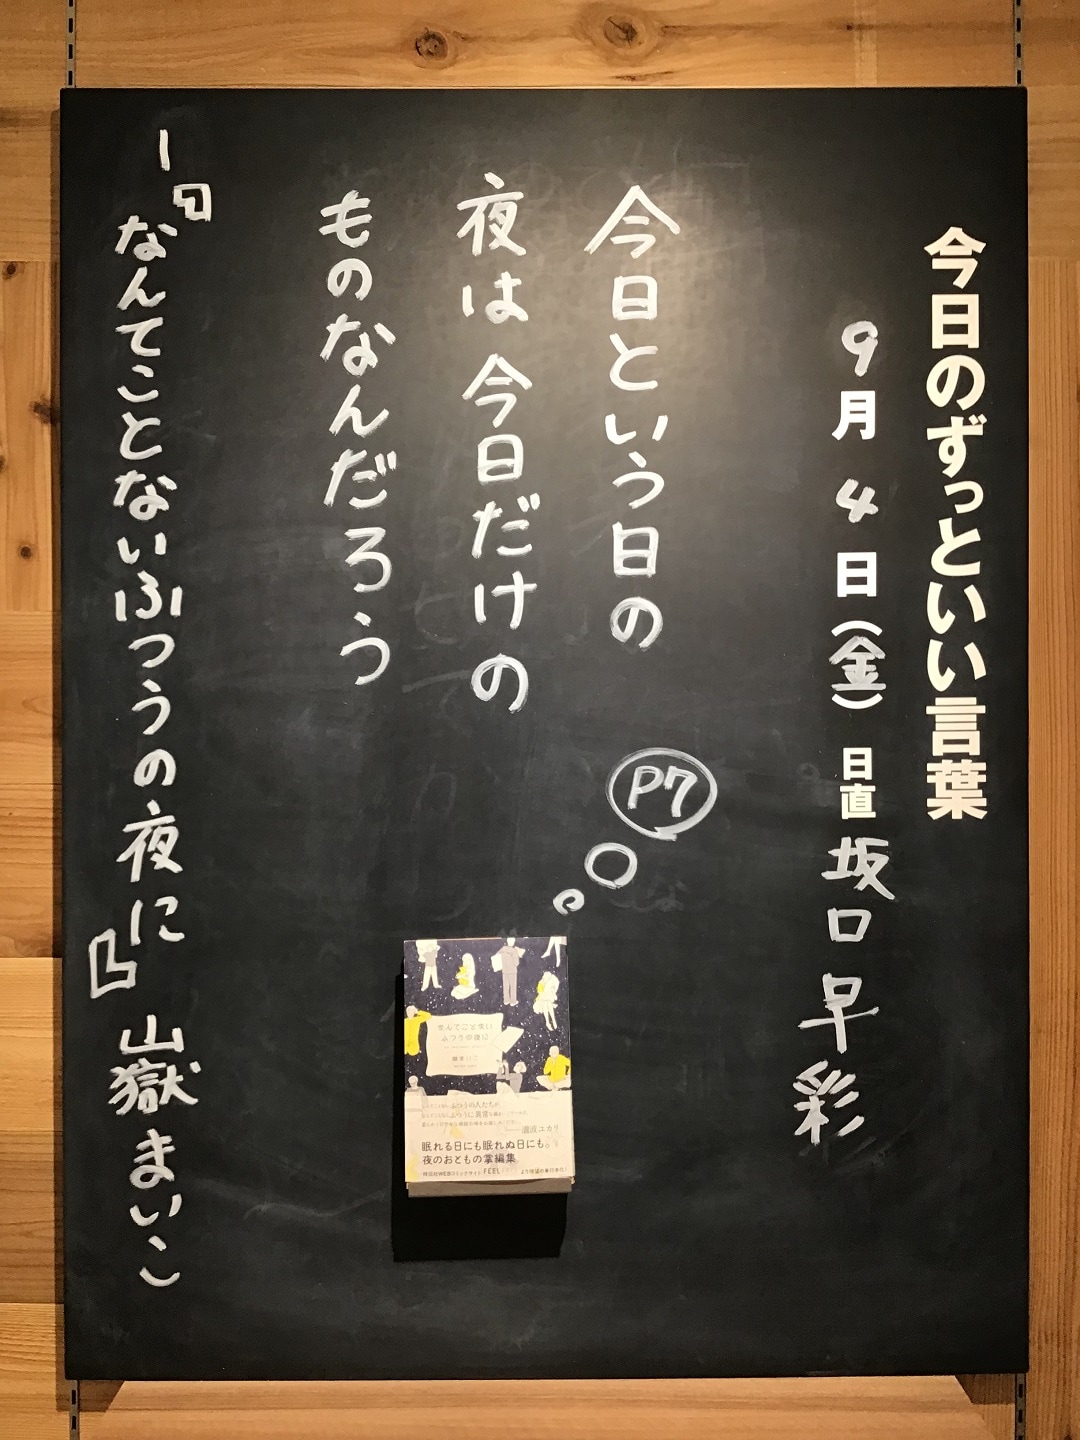 今日のずっといい言葉
9月4日(金) 日直 坂口早彩
今日という日の
夜は今日だけの
ものなんだろう
P7
『なんてことないふつうの夜に』 山嶽まいこ
なんてことない
ふつうの夜に
瀧波ユカリ
眠れる日にも眠れぬ日にも。
夜のおともの掌編集